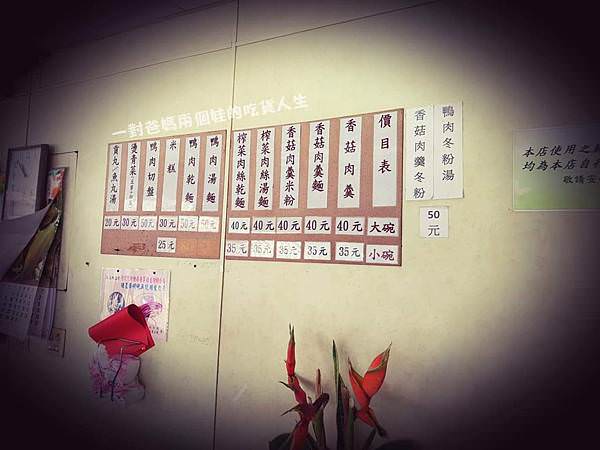 一對爸媽兩個娃的吃貨人生
鴨肉冬粉湯
香菇肉羹冬粉
50元
價目表
大碗
小碗
香菇肉羹
40元
35元
香菇肉羹麵
40元
35元
香菇肉羹米粉
40元
35元
榨菜肉絲湯麵
40元
35元
榨菜肉絲乾麵
40元
35元
鴨肉湯麵
50元
鴨肉乾麵
50元
米糕
30元
25元
鴨肉切盤
50元
燙青菜
30元
貢丸/魚丸湯
20元
本店使用之
均為本店自
敬請安